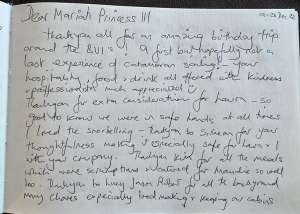 Dear Mariah Princess III
Dec 22
Thankyou all for an amazing birthday trip
around the BVI's! A first but hopefully not a
last experience of catamaran sailing - your
hospitality, food & drink all offered with kindness
& professionalism much appreciated
Thankyou for extra consideration for - so
good to know we were in safe hands at all times
I loved the snorkelling - Thankyou to for your
thoughtfulness making it especially safe for &
with your company. Thankyou for all the meals
which were scrumptious & for so well
too. Thankyou to for all the background
many chores especially bed making & keeping our cabins